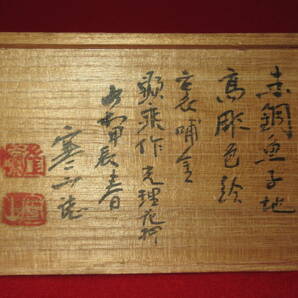 赤銅魚子地
高彫色絵
裏哺金
顕乗作 光理花押
昭和甲辰春
寒山誌